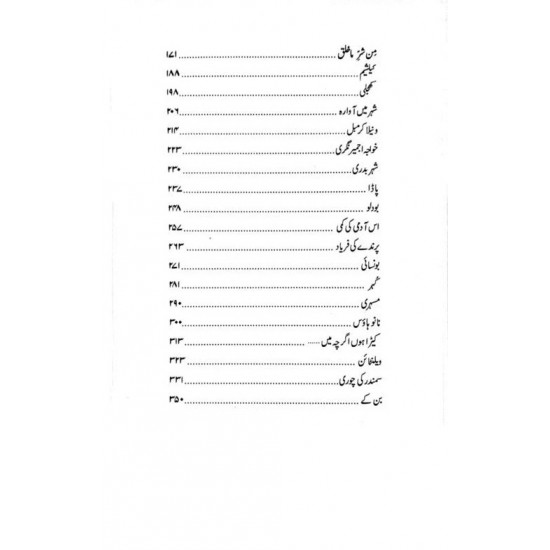 مِن شرِّ ما خلق ۱۷۱
کیلشیم ۱۸۸
کھجلی ۱۹۸
شہر میں آوارہ ۲۰۶
ونیلا کرمبل ۲۱۴
خواجہ اجمیر نگری ۲۲۳
شہر بدری ۲۳۰
پاڈا ۲۳۷
بودلو ۲۴۸
اس آدمی کی کمی ۲۵۷
پرندے کی فریاد ۲۶۳
بونسائی ۲۷۱
۲۸۱
مسہری ۲۹۰
نانو ہاؤس ۳۰۰
کیڑا ہوں اگرچہ میں ...... ۳۱۳
ویلنٹائن ۳۲۳
سمندر کی چوری ۳۳۱
بن کے ۳۵۰